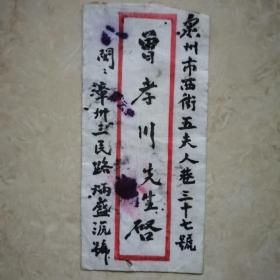 泉州市西街五夫人巷三十七號
曾孝川先生啓
閩漳州三民路炳盛派號